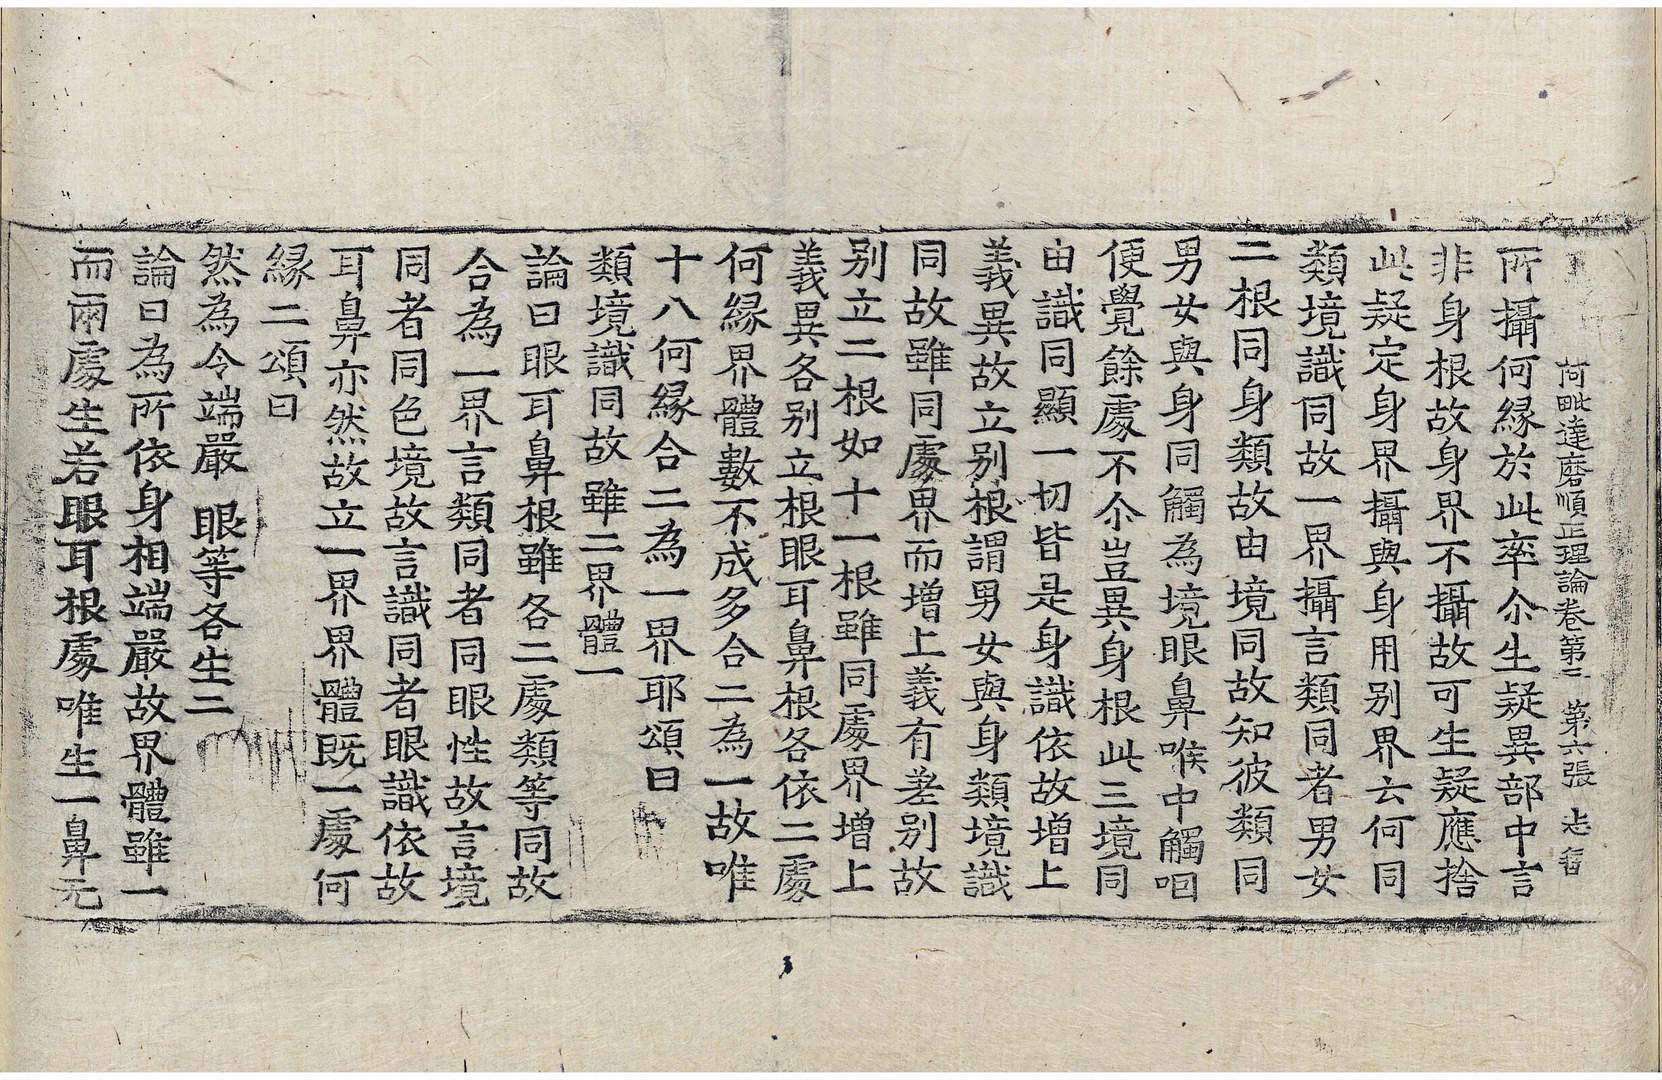 阿毗達磨順正理論卷第三 第六張 志
所攝何緣於此率尒生疑異部中言
非身根故身界不攝故可生疑應捨
此疑定身界攝與身用別界云何同
類境識同故一界攝言類同者男女
二根同身類故由境同故知彼類同
男女與身同觸為境眼鼻喉中觸呬
便覺餘處不尒豈異身根此三境同
由識同顯一切皆是身識依故增上
義異故立別根謂男女與身類境識
同故雖同處界而增上義有差別故
別立二根如十一根雖同處界增上
義異各別立根眼耳鼻根各依二處
何緣界體數不成多合二為一故唯
十八何緣合二為一界耶頌曰
類境識同故雖二界體一
論曰眼耳鼻根雖各二處類等同故
合為一界言類同者同眼性故言境
同者同色境故言識同者眼識依故
耳鼻亦然故立一界界體既一處何
緣二頌曰
然為令端嚴 眼等各生二
論曰為所依身相端嚴故界體雖一
而兩處生若眼耳根處唯生一鼻无